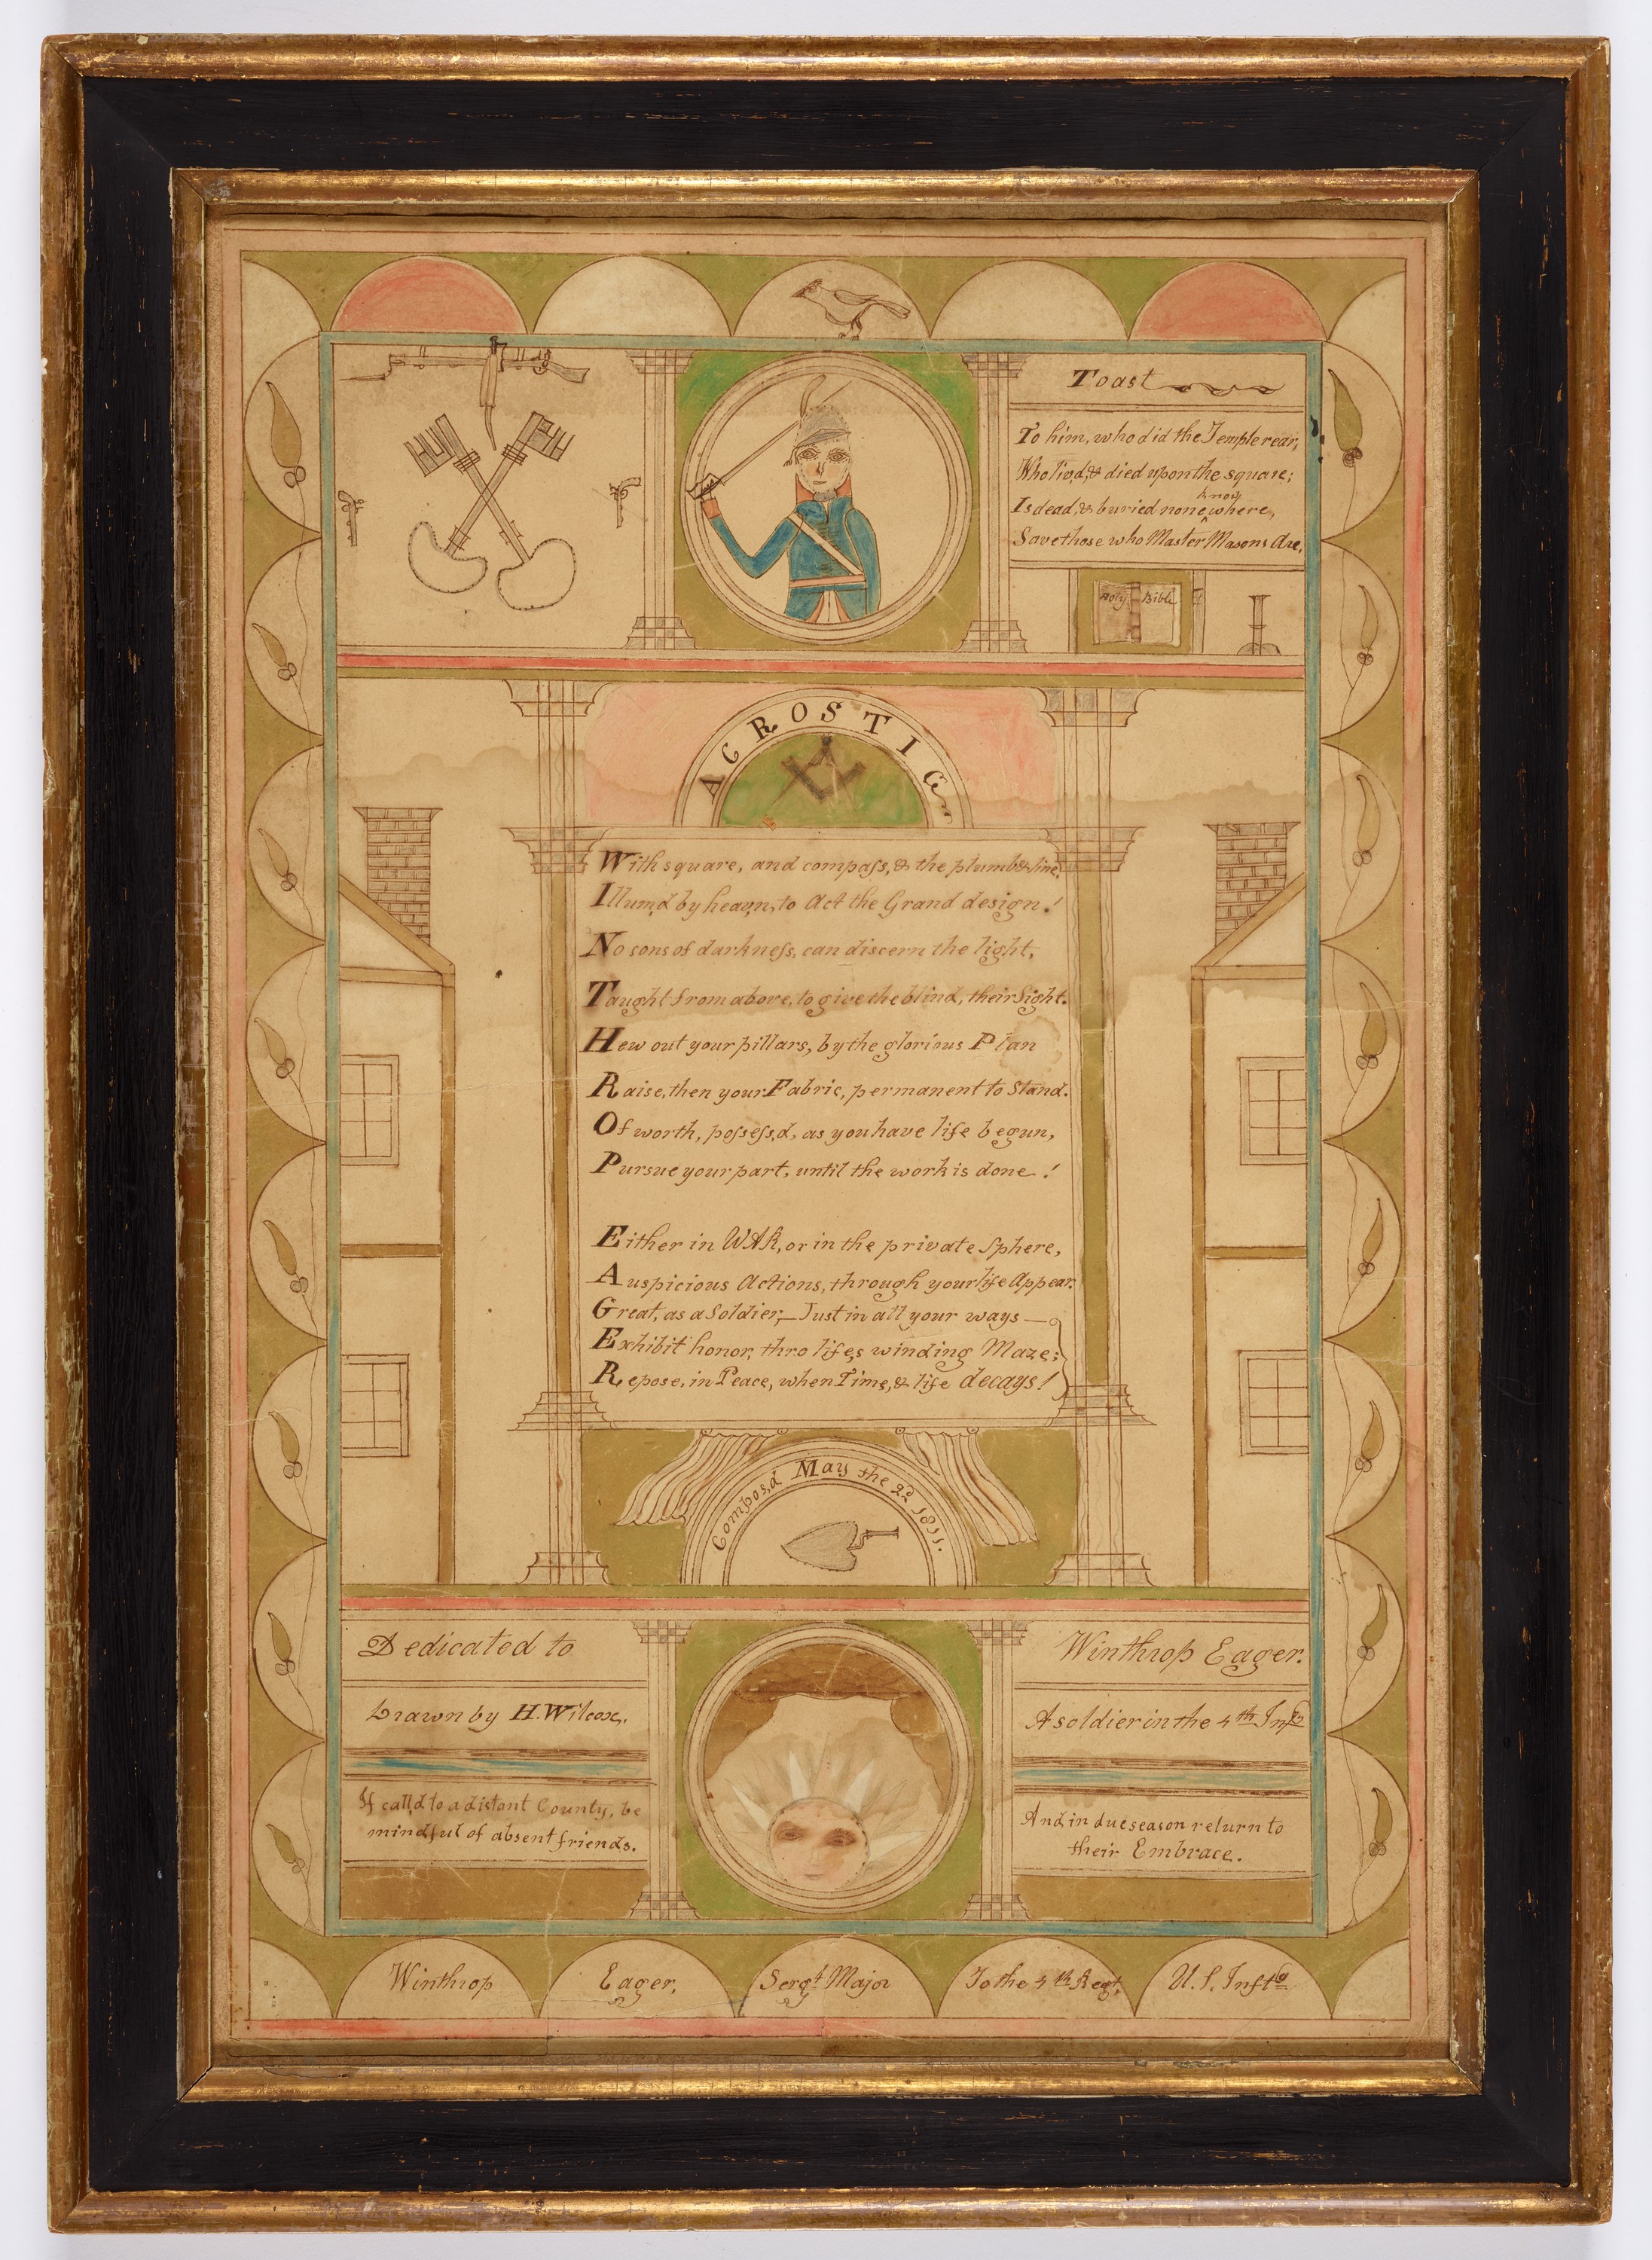 Toast
To him, who did the Temple rear,
Who liv,d,& died upon the square;
know
Is dead,& buried none where,
Save those who Master Masons Are.
Holy Bible
ACROSTIC
With square, and compaſs,& the plumb&line,
Illum,d by heav,n, to Act the Grand design!
No sons of darkneſs, can discern the light,
Taught from above, to give the blind, their Sight.
Hew out your pillars, by the glorious Plan
Raise, then your Fabric, permanent to Stand.
Of worth, poſseſs,d, as you have life begun,
Pursue your part, until the work is done!
Either in WAR, or in the private Sphere,
Auspicious Actions, through your life Appear.
Great, as a Soldier,—Just in all your ways—
Exhibit honor, thro life,s winding Maze;
Repose, in Peace, when Time,& life decays!
Compos,d May the 22d 1811.
Dedicated to
Winthrop Eager.
Drawn by H. Wilcox.
A soldier in the 4th Infty
If call,d to a distant County, be
mindful of absent friends.
And in due season return to
their Embrace.
Winthrop Eager, Sergt Major To the 4th Regt. U.S. Infty